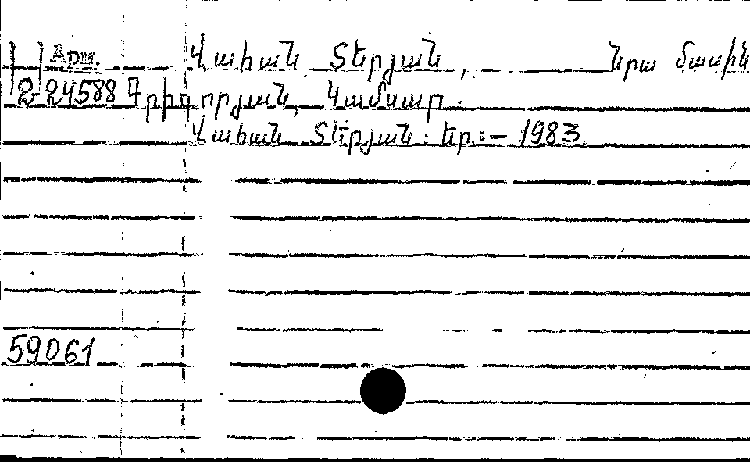 Վահան Տերյան, նրա մասին
2-24588 Գրիգորյան, Կամսար.
Վահան Տերյան: Եր.:— 1983
59061